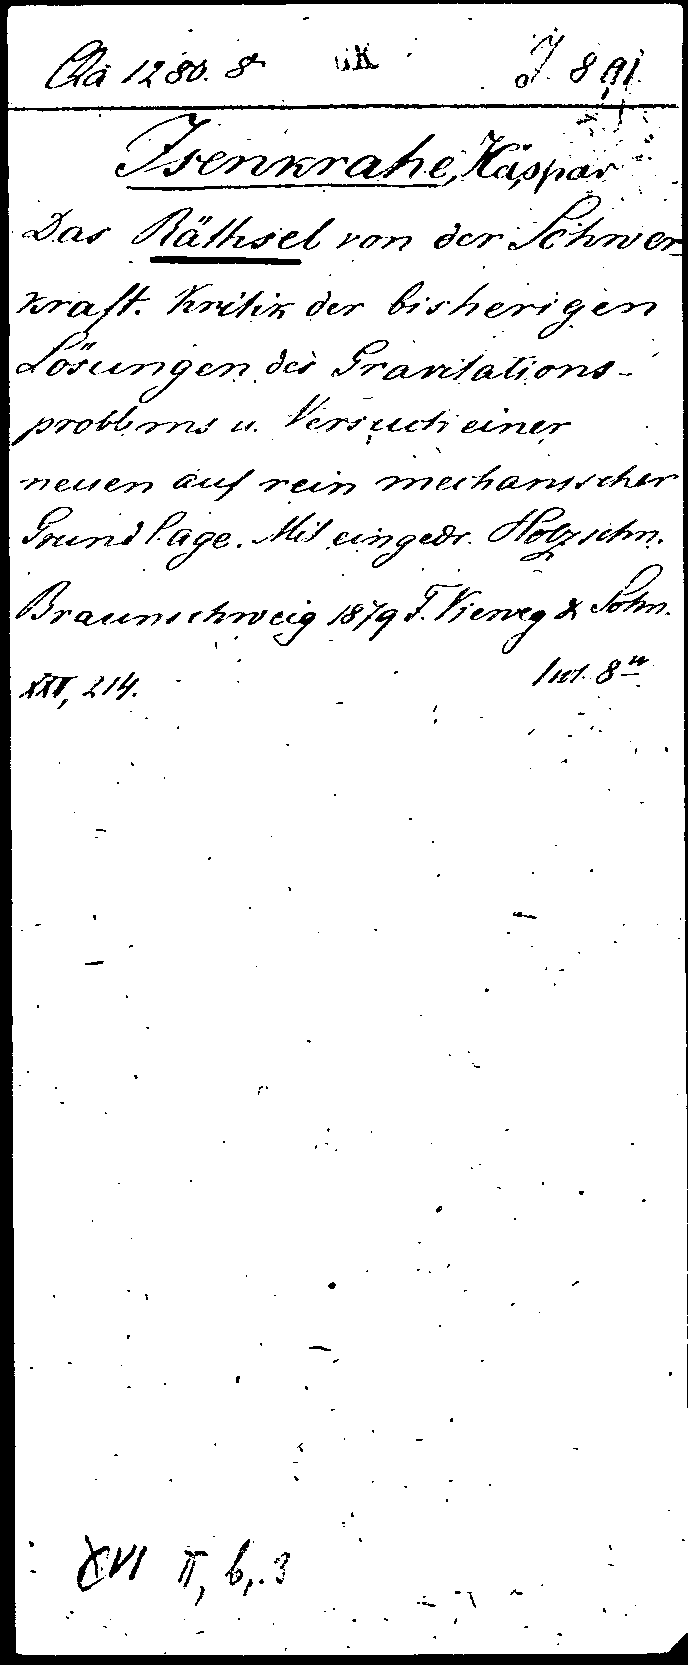 Qa 1280. 8º J 891
Isenkrahe, Kaspar
Das Räthsel von der Schwer-
kraft. Kritik der bisherigen
Lösungen des Gravitations-
problems u. Versuch einer
neuen auf rein mechanischer
Grundlage. Mit eingedr. Holzschn.
Braunschweig 1879 F. Vieweg & Sohn.
XXI, 214. 8º
XVI II, b, 3